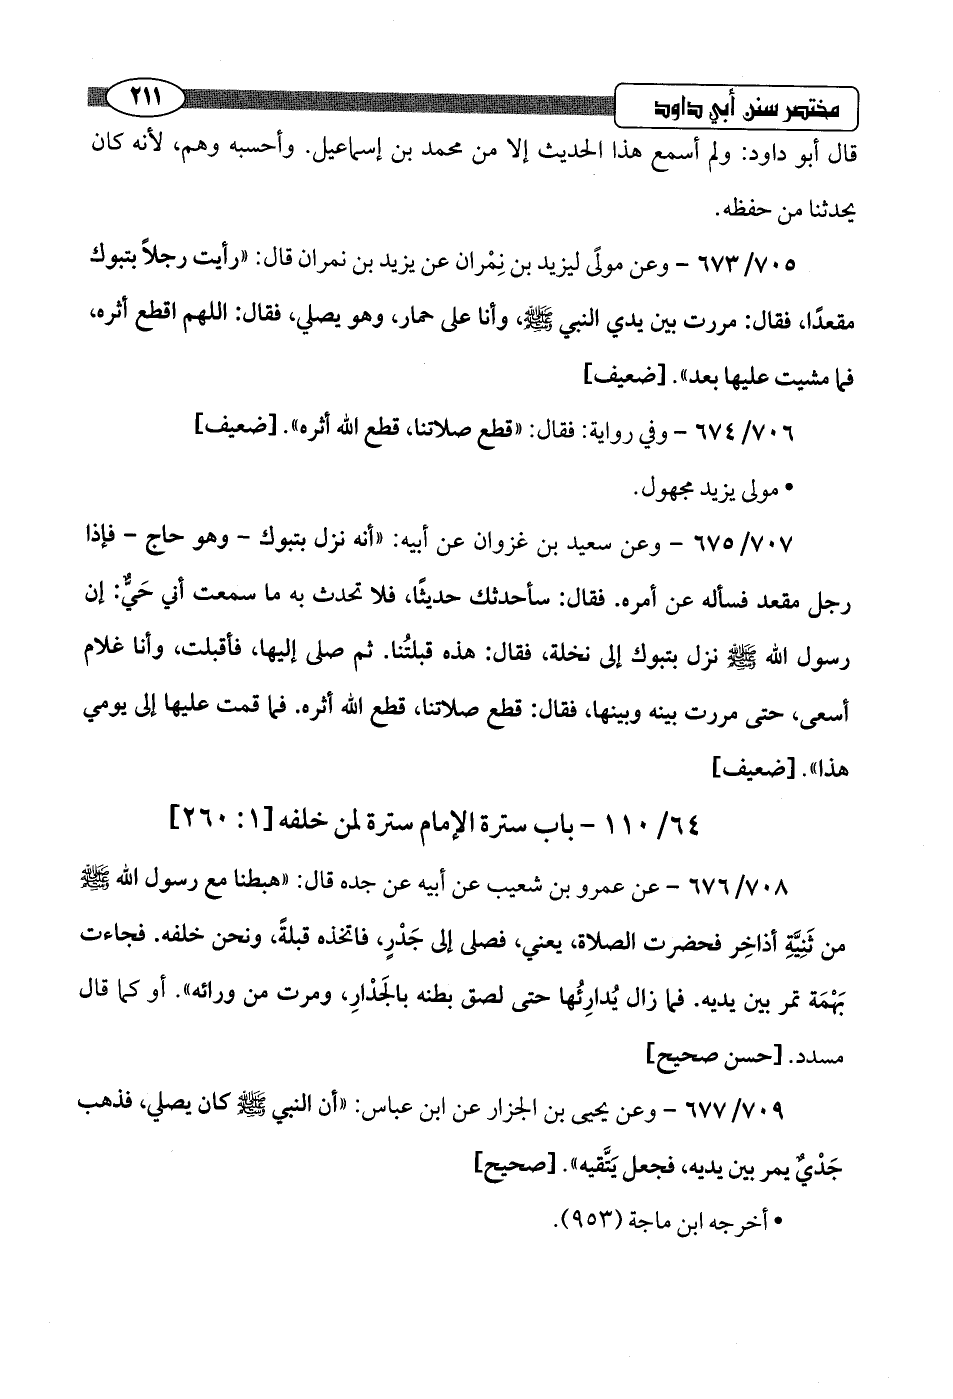 مختصر سنن أبي داود ٢١١
قال أبو داود: ولم أسمع هذا الحديث إلا من محمد بن إسماعيل. وأحسبه وهم، لأنه كان
يحدثنا من حفظه.
٦٧٣/٧٠٥ – وعن مولًى ليزيد بن نِمْران عن يزيد بن نمران قال: «رأيت رجلاً بتبوك
مقعدًا، فقال: مررت بين يدي النبي ﷺ، وأنا على حمار، وهو يصلي، فقال: اللهم اقطع أثره،
فما مشيت عليها بعد». [ضعيف]
٦٧٤/٧٠٦ – وفي رواية: فقال: «قطع صلاتنا، قطع الله أثره». [ضعيف]
• مولى يزيد مجهول.
٦٧٥/٧٠٧ – وعن سعيد بن غزوان عن أبيه: «أنه نزل بتبوك – وهو حاج – فإذا
رجل مقعد فسأله عن أمره. فقال: سأحدثك حديثًا، فلا تحدث به ما سمعت أني حَيٌّ: إن
رسول الله ﷺ نزل بتبوك إلى نخلة، فقال: هذه قبلتُنا. ثم صلى إليها، فأقبلت، وأنا غلام
أسعى، حتى مررت بينه وبينها، فقال: قطع صلاتنا، قطع الله أثره. فما قمت عليها إلى يومي
هذا». [ضعيف]
١١٠/٦٤ – باب سترة الإمام سترة لمن خلفه [١: ٢٦٠]
٦٧٦/٧٠٨ – عن عمرو بن شعيب عن أبيه عن جده قال: «هبطنا مع رسول الله ﷺ
من ثَنِيَّةِ أذاخِر فحضرت الصلاة، يعني، فصلى إلى جَدْرٍ، فاتخذه قبلةً، ونحن خلفه. فجاءت
بَهْمَة تمر بين يديه. فما زال يُدارِئُها حتى لصق بطنه بالجَدْارِ، ومرت من ورائه». أو كما قال
مسدد. [حسن صحيح]
٦٧٧/٧٠٩ – وعن يحيى بن الجزار عن ابن عباس: «أن النبي ﷺ كان يصلي، فذهب
جَدْيٌ يمر بين يديه، فجعل يَتَّقيه». [صحيح]
• أخرجه ابن ماجة (٩٥٣).